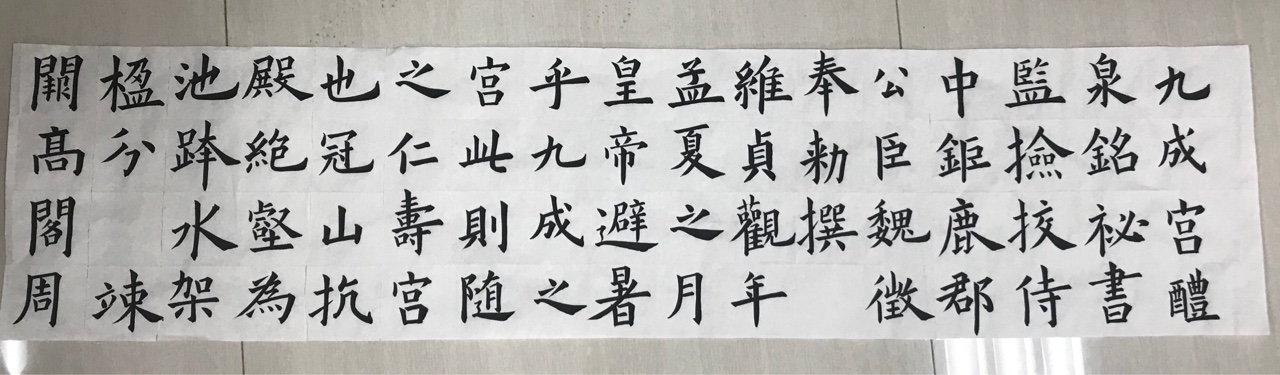 九成宫醴
泉銘祕書
監撿挍侍
中鉅鹿郡
公臣魏徵
奉勑撰
維貞觀年
孟夏之月
皇帝避暑
乎九成之
宫此則随
之仁壽宫
也冠山抗
殿絶壑為
池跨水架
楹分竦
闕髙閣周